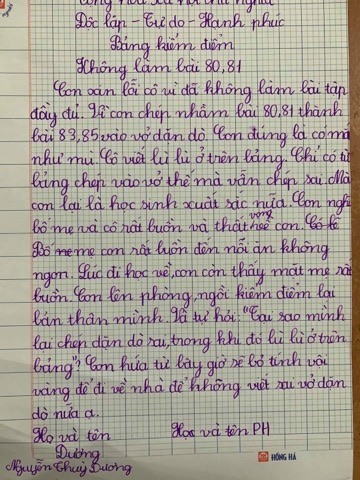 Cộng hoà xã hội chủ nghĩa
Độc lập - Tự do - Hạnh phúc
Bảng kiểm điểm
Không làm bài 80,81
Con xin lỗi cô vì đã không làm bài tập
đầy đủ. Vì con chép nhầm bài 80,81 thành
bài 83,85 vào vở dặn dò. Con đúng là có mắt
như mù. Cô viết lù lù ở trên bảng. Chỉ có từ
bảng chép vào vở thế mà vẫn chép sai. Mà
con lại là học sinh xuất sắc nữa. Con nghĩ
bố mẹ và cô rất buồn và thất vọng về con.
Bố mẹ con rất buồn đến nỗi ăn không
ngon. Lúc đi học về, con còn thấy mắt mẹ rất
buồn. Con lên phòng, ngồi kiểm điểm lại
bản thân mình. Và tự hỏi: "Tại sao mình
lại chép dặn dò sai, trong khi đó lù lù ở trên
bảng"? Con hứa từ bây giờ sẽ bỏ tính vội
vàng để đi về nhà để không viết sai vở dặn
dò nữa ạ.
Họ và tên Họ và tên PH
Dương
Nguyễn Thuỳ Dương
HỒNG HÀ